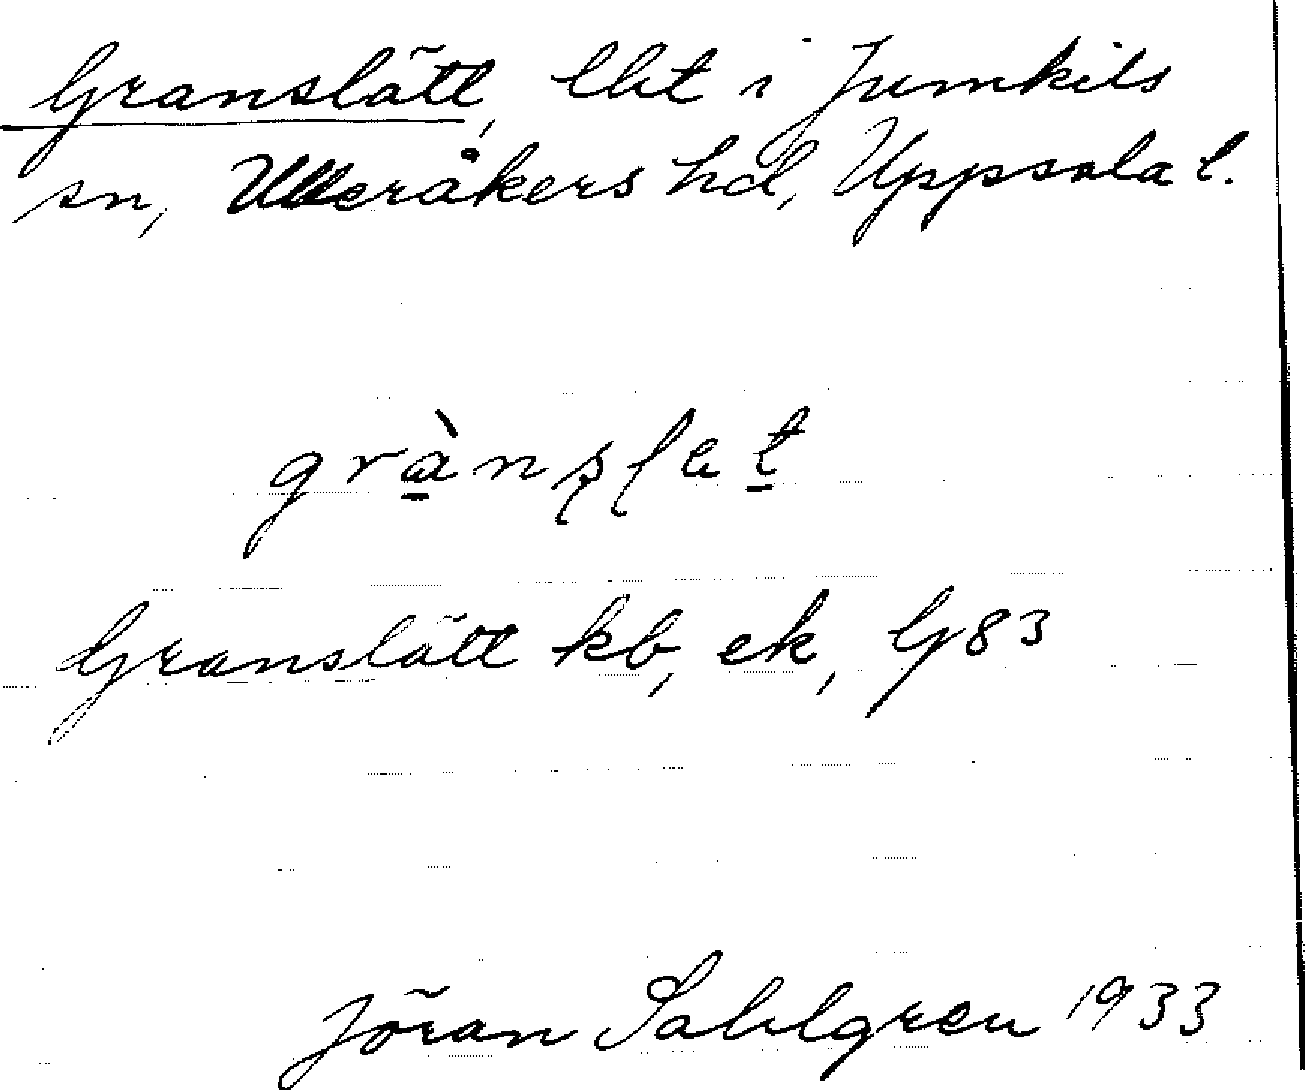 Granslätt, lht i Jumkils
sn, Ulleråkers hd, Uppsala l.
grànslat
Granslätt kb, ek, G83
Jöran Sahlgren 1933